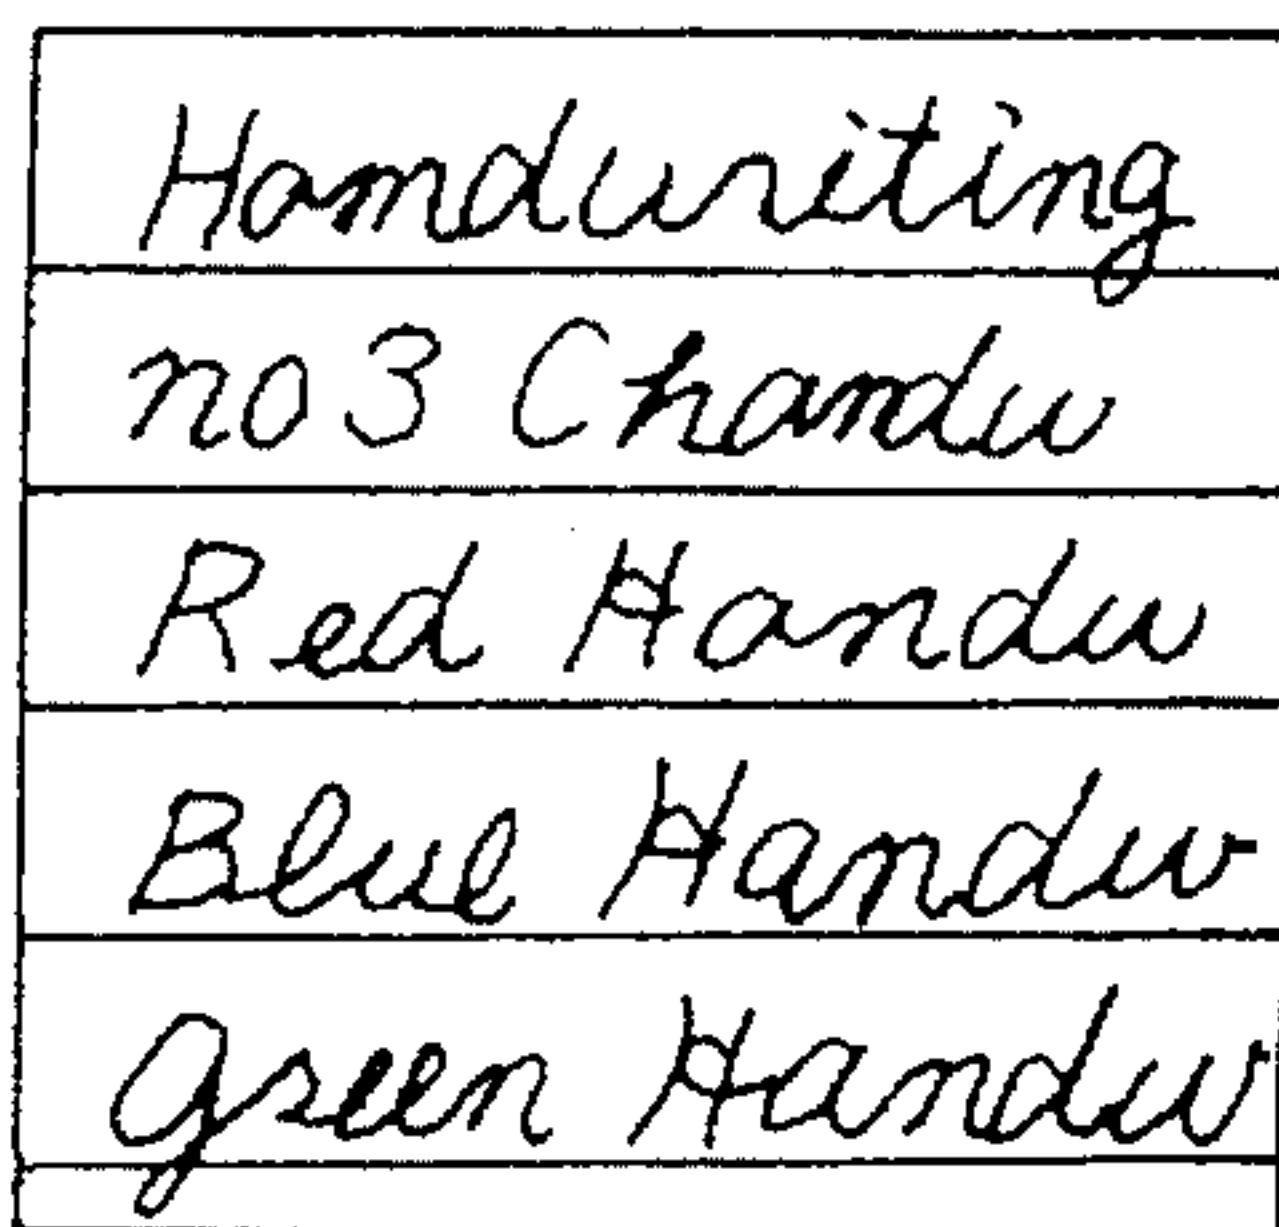 Handwriting
no 3 Chandw
Red Handw
Blue Handw
green Handw